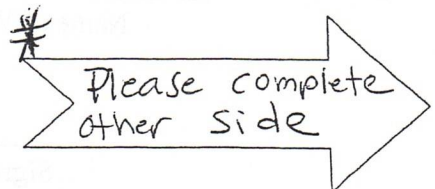 Please complete
other side